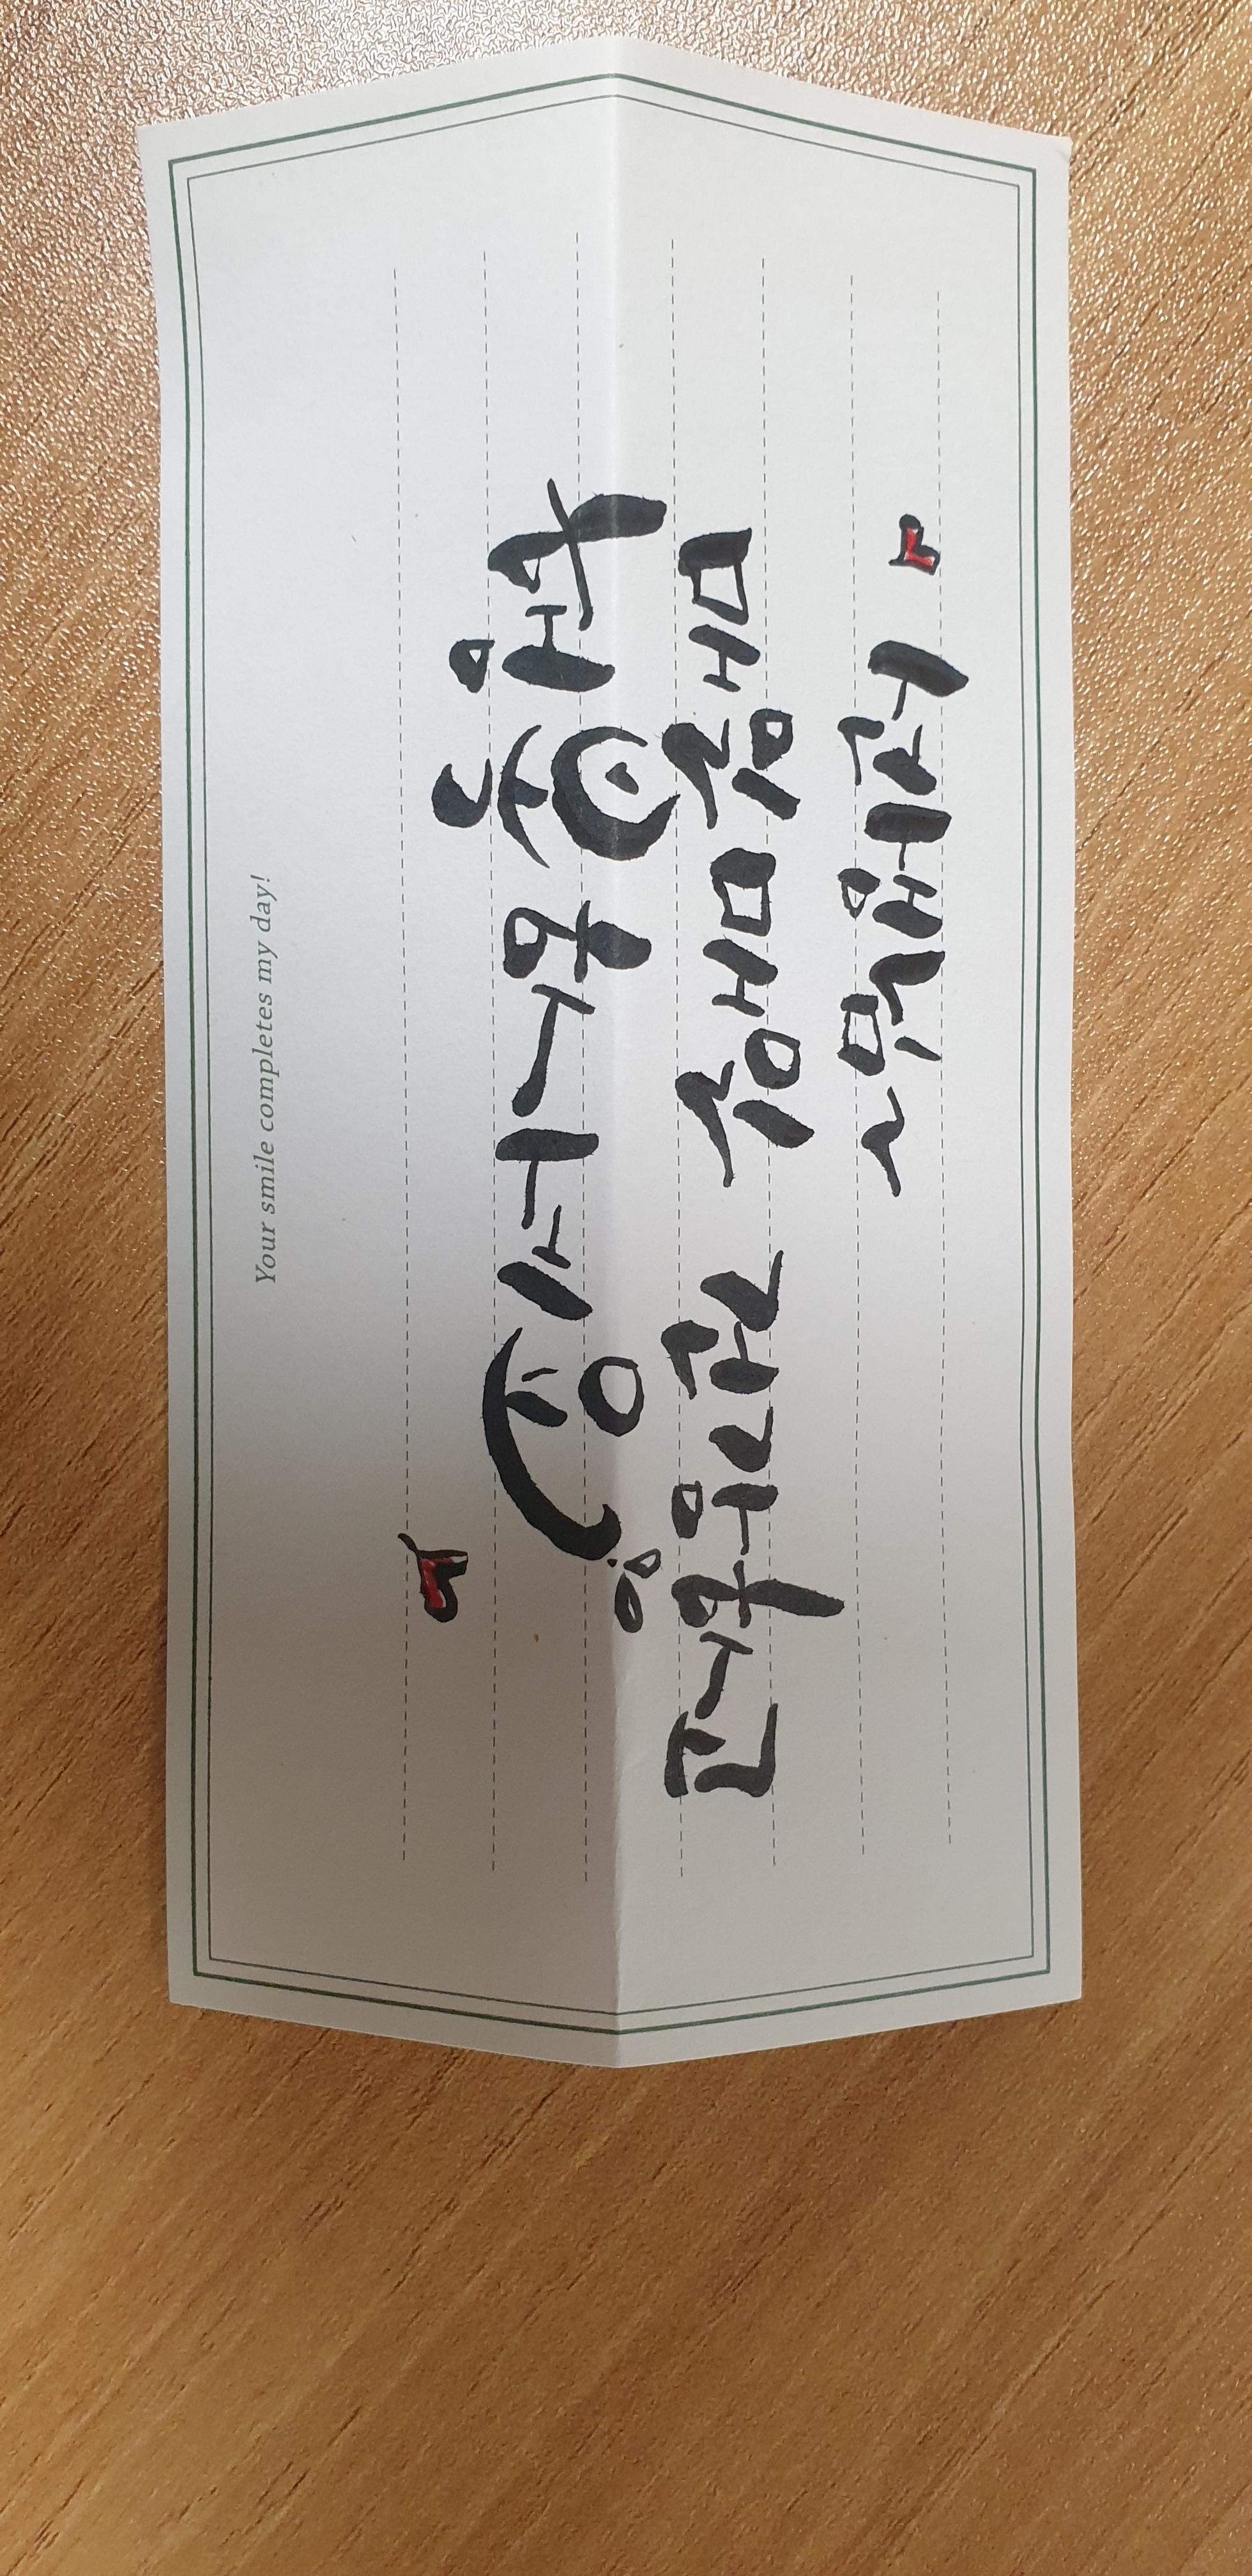 「선생님~
매일매일 건강하고
행복하세요」
Your smile completes my day!